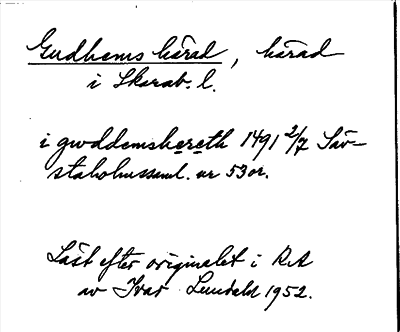 Gudhems härad, härad
i Skarab. l.
i gwddemshereth 1491 2/7 Säv-
staholmssaml. nr 53 or.
Läst efter originalet i RA
av Ivar Lundahl 1952.